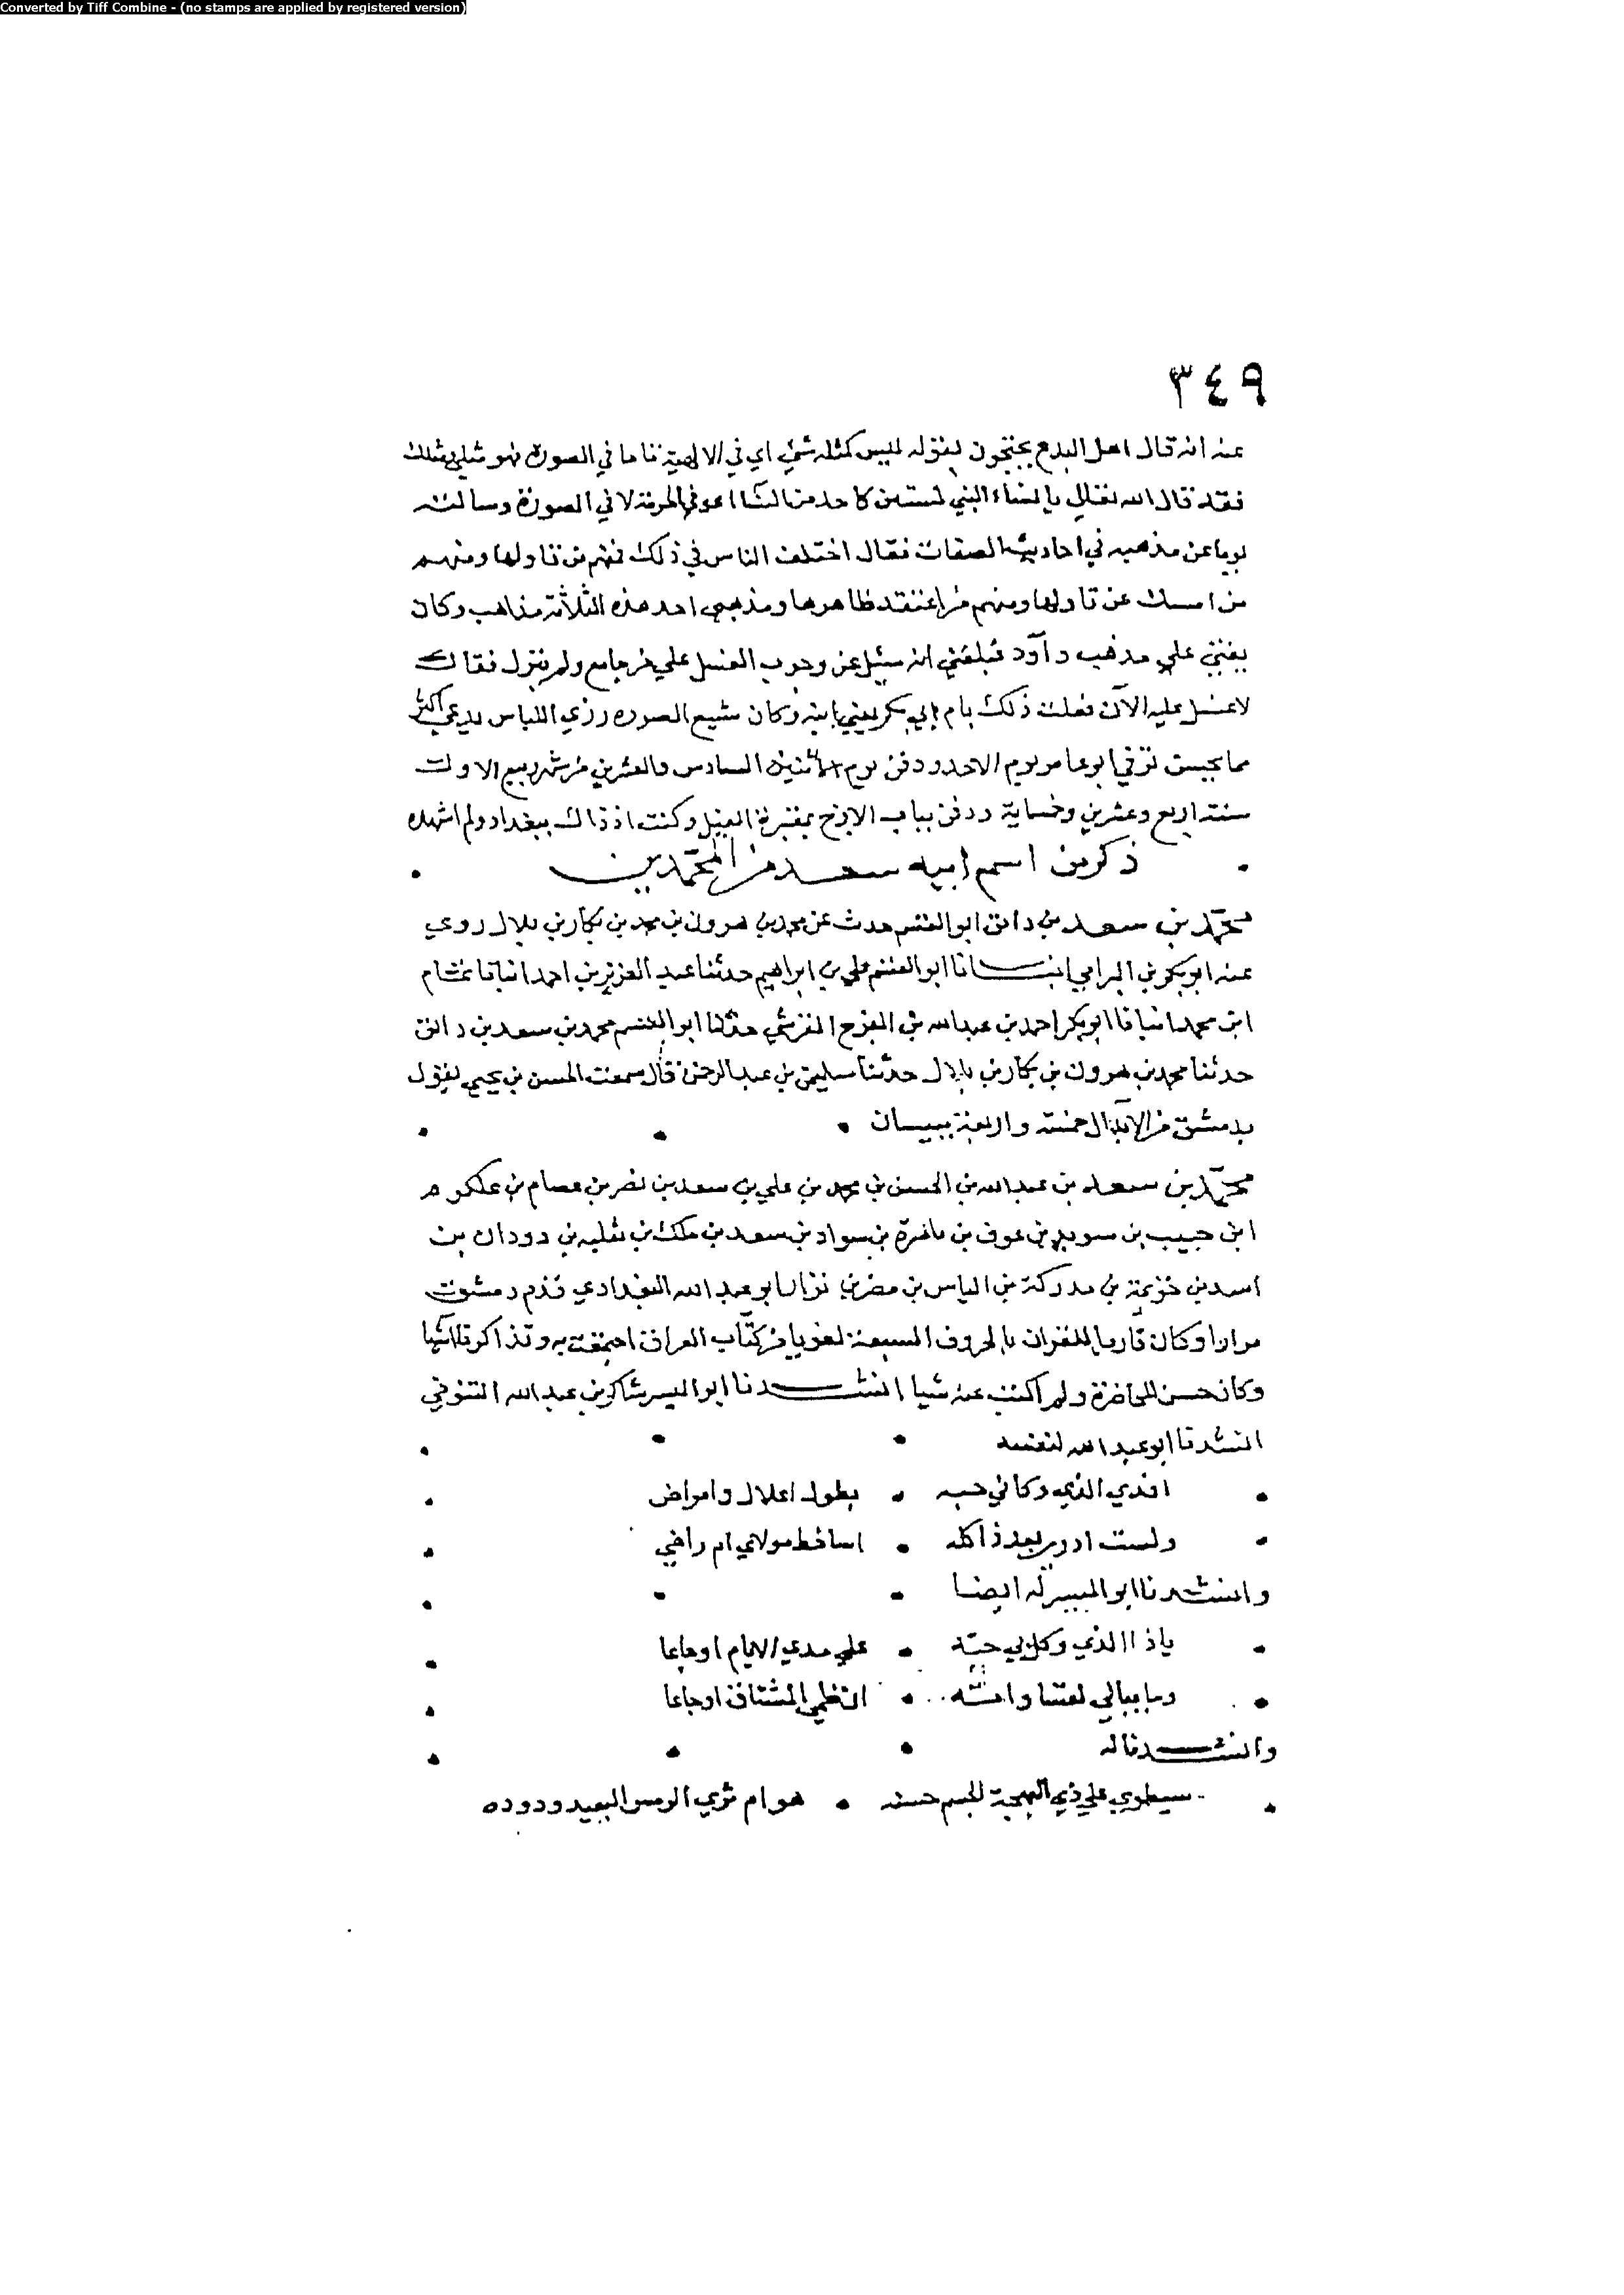 Converted by Tiff Combine - (no stamps are applied by registered version)
٣٤٩
عنه انه قال اهل البدع يحتجون بقوله ليس كمثله شيء اي في الالهية فاما في الصورة فهو مثلي ومثلك
فقد قال الله تعالى يا نساء النبي لستن كاحد من النسا اي في الحرمة لا في الصورة وسالته
يوما عن مذهبه في احاديث الصفات فقال اختلف الناس في ذلك فمنهم من تاولها ومنهم
من امسك عن تاولها ومنهم من اعتقد ظاهرها ومذهبي احد هذه الثلاثة مذاهب وكان
يفتي علي مذهب داود فبلغني انه سئل عن وجوب الغسل علي من جامع ولم ينزل فقال
لا غسل عليه الآن فعلت ذلك بام ابي بكر يعني ابنه وكان بشع الصورة زري اللباس يدعي اكثر
مما يحسن توفي ابو عامر يوم الاحد ودفن يوم الاثنين السادس والعشرين من شهر ربيع الاول
سنة اربع وعشرين وخمسماية ودفن بباب الازج بمقبرة الفيل وكنت اذ ذاك ببغداد ولم اشهده
ذكر من اسم ابيه سعد من المحمدين
محمد بن سعد بن دانق ابو القسم حدث عن محمد بن هرون بن محمد بن بكار بن بلال روي
عنه ابو بكر بن البرامي انبانا ابو القسم علي بن ابراهيم حدثنا عبد العزيز بن احمد انبانا تمام
ابن محمد انبانا ابو بكر احمد بن عبد الله بن الفرج القرشي حدثنا ابو القسم محمد بن سعد بن دانق
حدثنا محمد بن هرون بن بكار بن بلال حدثنا سليمن بن عبد الرحمن قال سمعت الحسن بن يحيي يقول
بدمشق من الابدال خمسة واربعة ببيسان
محمد بن سعد بن عبد الله بن الحسن بن محمد بن علي بن سعد بن نصر بن عصام بن علكوم
ابن حبيب بن سويد بن عوف بن ناضرة بن سواد بن سعد بن ملك بن ثعلبه بن دودان بن
اسد بن خزيمة بن مدركة بن الياس بن مضر بن نزار ابو عبد الله البغدادي قدم دمشق
مرارا وكان قاريا للقران بالحروف السبعة لغويا من كتاب العراق اجتمعت به وتذاكرنا اشيا
وكان حسن المحاضرة ولم اكتب عنه شيا انشدنا ابو اليسر شاكر بن عبد الله التنوخي
انشدنا ابو عبد الله لنفسه
افدي الذي وكلني حبه بطول اعلال وامراض
ولست ادري بعد ذا كله اساخط مولاي ام راضي
وانشدنا ابو اليسر له ايضا
يا ذا الذي وكل بي حبه علي مدي الايام اوجاعا
وما يبالي لقسا وانه ان ظمي المشتاق او جاعا
وانشدنا له
سيطوي علي ذي البهجة الجسم حسنه هوام ثري الرمس البعيد ودوده